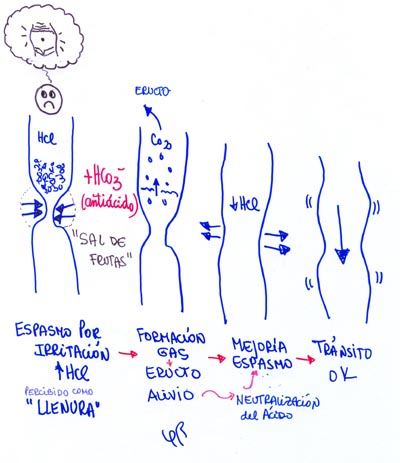 ERUCTO
HCl
CO2
+HCO3-
(antiácido)
"SAL DE
FRUTAS"
↓HCl
ESPASMO POR
IRRITACIÓN
↑HCl
PERCIBIDO COMO
"LLENURA"
FORMACIÓN
GAS
ERUCTO
ALIVIO
MEJORÍA
ESPASMO
NEUTRALIZACIÓN
del ÁCIDO
TRÁNSITO
OK